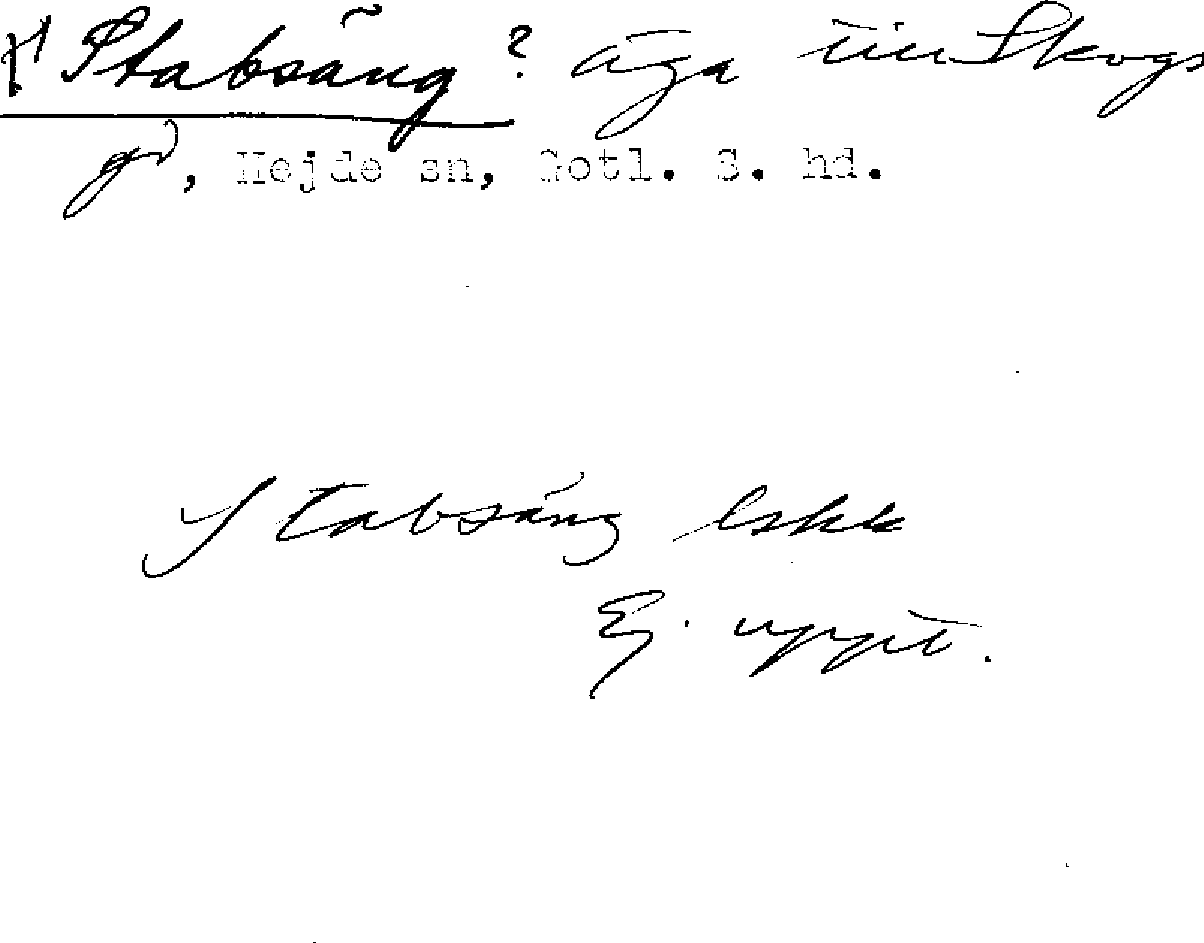 x) Stabsäng? äga till Skogs
gd, Hejde sn, Gotl. S. hd.
Stabsäng lskk
Ej uppt.